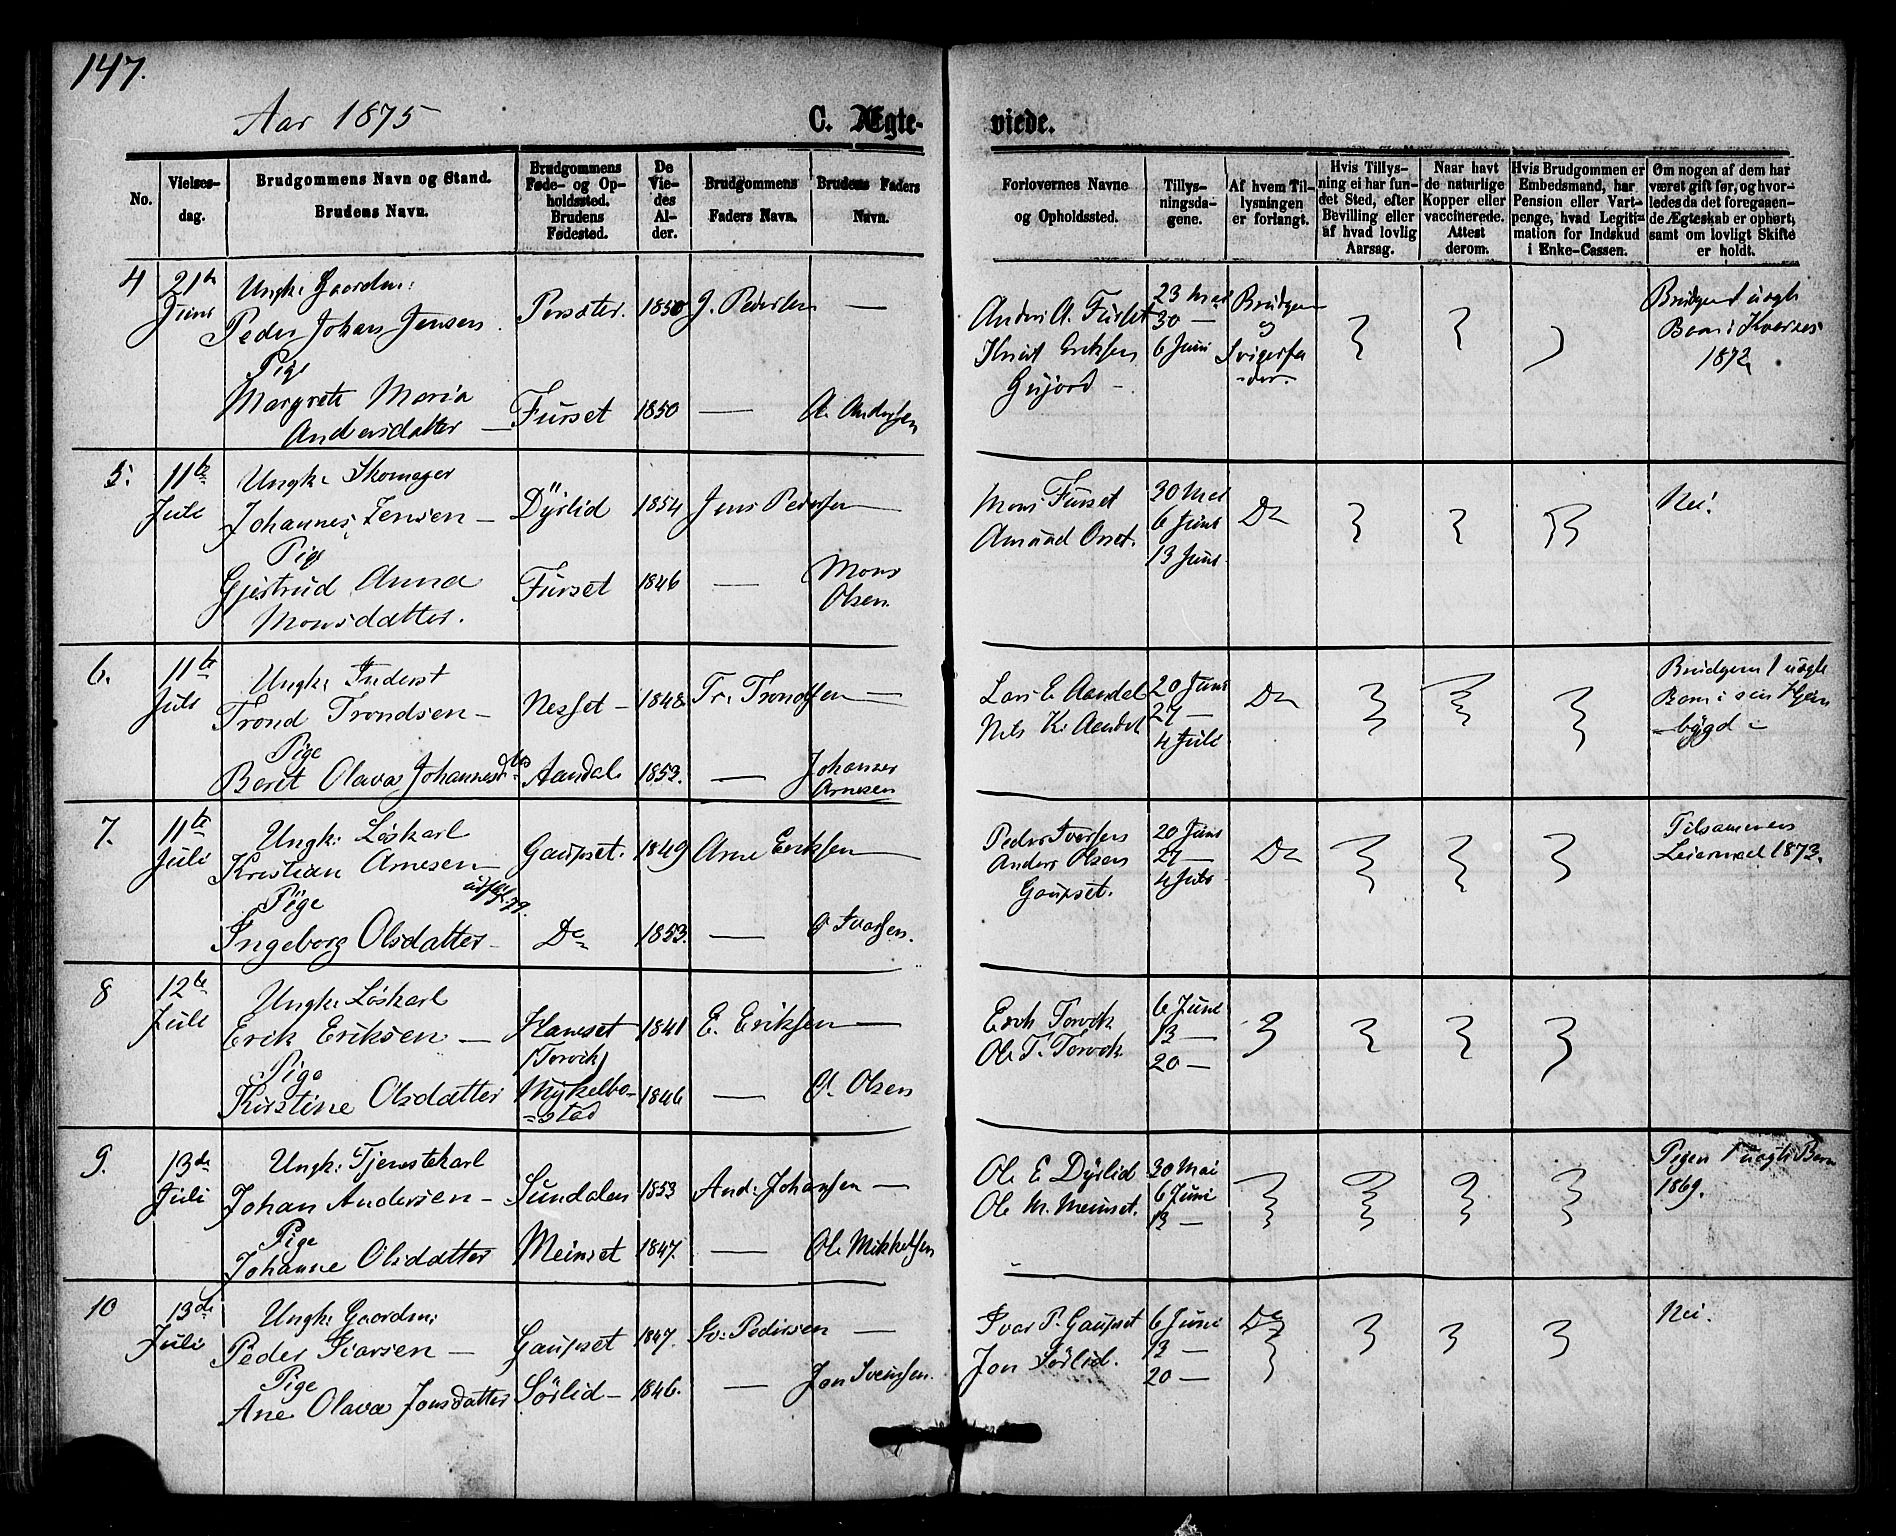 147.
Aar 1875
C. Ægteviede.
No.
Vielsesdag.
Brudgommens Navn og Stand.
Brudens Navn.
Brudgommens Føde- og Opholdssted. Brudens Fødested.
De Viedes Alder.
Brudgommens Faders Navn.
Brudens Faders Navn.
Forlovernes Navne og Opholdssted.
Tillysningsdagene.
Af hvem Tillysningen er forlangt.
Hvis Tillysning ei har fundet Sted, efter Bevilling eller af hvad lovlig Aarsag.
Naar havt de naturlige Kopper eller vaccinerede. Attest derom.
Hvis Brudgommen er Embedsmand, har Pension eller Vartpenge, hvad Legitimation for Indskud i Enke-Cassen.
Om nogen af dem har været gift før, og hvorledes da det foregaaende Ægteskab er ophørt, samt om lovligt Skifte er holdt.
4 21de Juni
Ungk. Gaardm:
Peder Johan Jensen
Persæter. 1850 J. Pedersen —
Pige
Margrete Maria
Andersdatter — Furset 1850 — A. Andersen
Anders A. Furset
Knut Eriksen
Gujord —
23 Mai
30 —
6 Juni
Brudgom
og
Svigerfa
-der.
Brudgom 1 uægte
Barn i Kvernes
1872
5. 11te Juli
Ungk. Skomager
Johannes Jensen —
Dÿrlid 1854 Jens Pedersen —
Pige
Gjertrud Anna
Monsdatter.
Furset 1846 — Mons
Olsen.
Mons Furset
Amund Orset.
30 Mai
6 Juni
13 Juni
Do
Nei.
6. 11te Juli
Ungk. Inderst
Trond Trondsen —
Nesset — 1848 Tr. Trondsen —
Pige
Beret Olava Johannesdtr Aandal 1853. — Johannes
Arnesen
Lars E. Aandal
Nils K. Aandal
20 Juni
27 —
4 Juli
Do
Brudgom 1 uægte
Barn i sin Hjem
-bygd —
7. 11te Juli
Ungk. Løskarl
Kristian Arnesen —
Gaupset. 1849 Arne Eriksen —
Pige
Ingeborg Olsdatter — Do 1853. — O. Ivarsen.
Peder Ivarsen
Anders Olsen
Gaupset.
20 Juni
27 —
4 Juli
Do
Tilsammen
Leiermaal 1873.
8 12te Juli
Ungk. Løskarl
Erik Eriksen —
Hanset
(Torvik)
1841 E. Eriksen —
Pige
Kirstine Olsdatter
Mykelbo-
-stad
1846 — O. Olsen
Erik Torvik
Ole T. Torvik
6 Juni
13 —
20 —
9. 13de Juli
Ungk. Tjenestekarl
Johan Andersen —
Sundalen 1853 And. Johansen —
Pige
Johanne Olsdatter Meinset 1847. — Ole Mikkelsen
Ole E Dÿrlid
Ole M. Meinset.
30 Mai
6 Juni
13 —
Pigen 1 uægte Barn
1869.
10 13de Juli
Ungk. Gaardm:
Peder —
Gaupset 1847. Pedersen —
Pige
Ane Olava Jonsdatter Sørlid — 1846. — Jon Svensen.
Ivar P. Gaupset
Jon Sørlid.
6 Juni
13 —
20 —
Do
Nei.